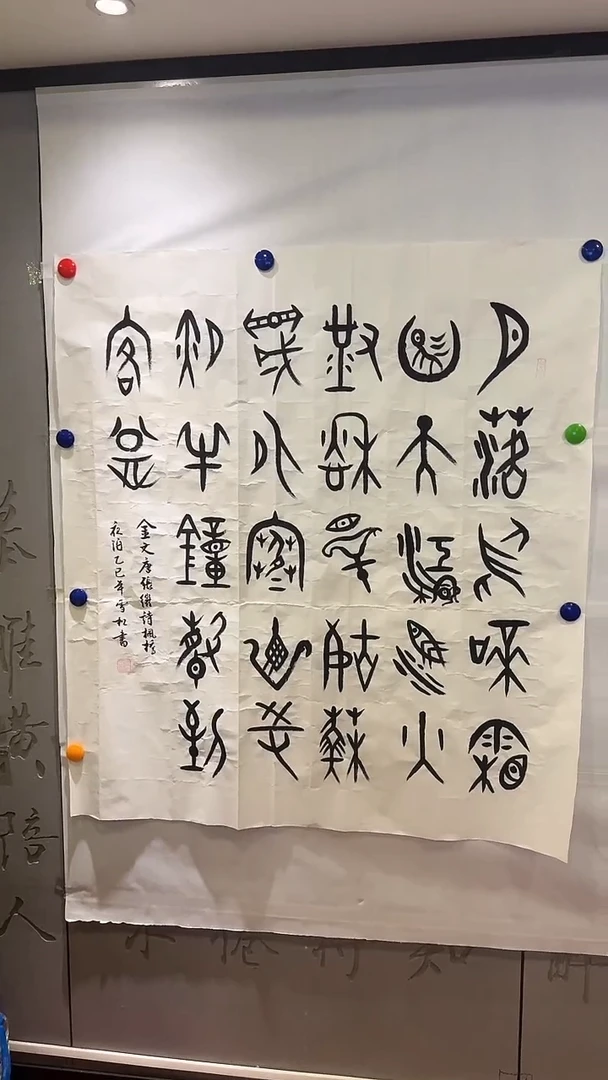 月落烏啼霜
滿天江楓漁火
對愁眠姑蘇
城外寒山寺
夜半鐘聲到
客船
金文唐張繼詩楓橋
夜泊乙巳年雪松書